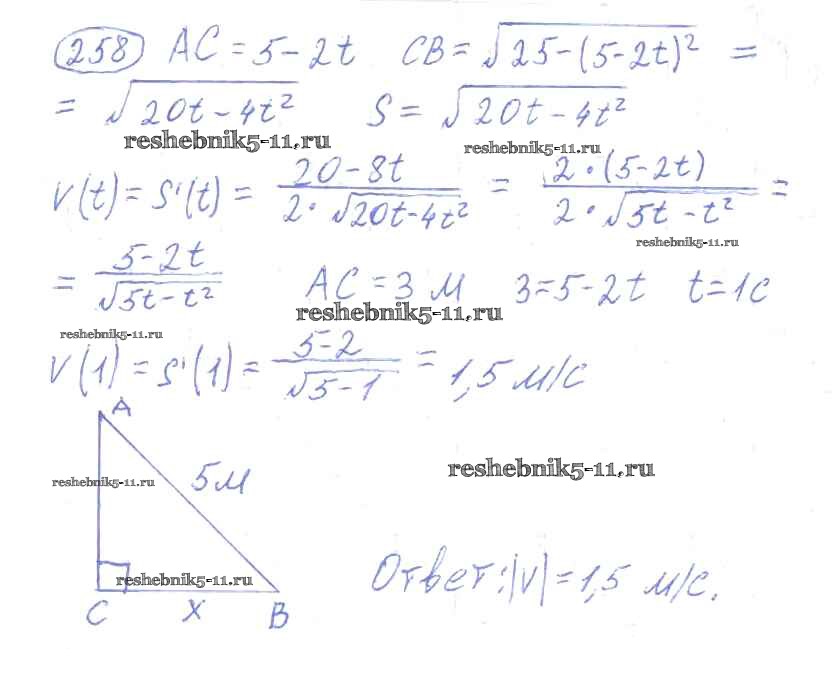 258 AC = 5 - 2t CB = √(25 - (5 - 2t)²) =
= √(20t - 4t²) S = √(20t - 4t²)
reshebnik5-11.ru reshebnik5-11.ru
V(t) = S'(t) = (20 - 8t)/(2 · √(20t - 4t²)) = (2 · (5 - 2t))/(2 · √(5t - t²)) =
reshebnik5-11.ru
= (5 - 2t)/√(5t - t²) AC = 3 м 3 = 5 - 2t t = 1 с
reshebnik5-11.ru
reshebnik5-11.ru
V(1) = S'(1) = (5 - 2)/√(5 - 1) = 1,5 м/с
A
reshebnik5-11.ru
5 м
reshebnik5-11.ru
reshebnik5-11.ru
Ответ: |V| = 1,5 м/с.
C X B